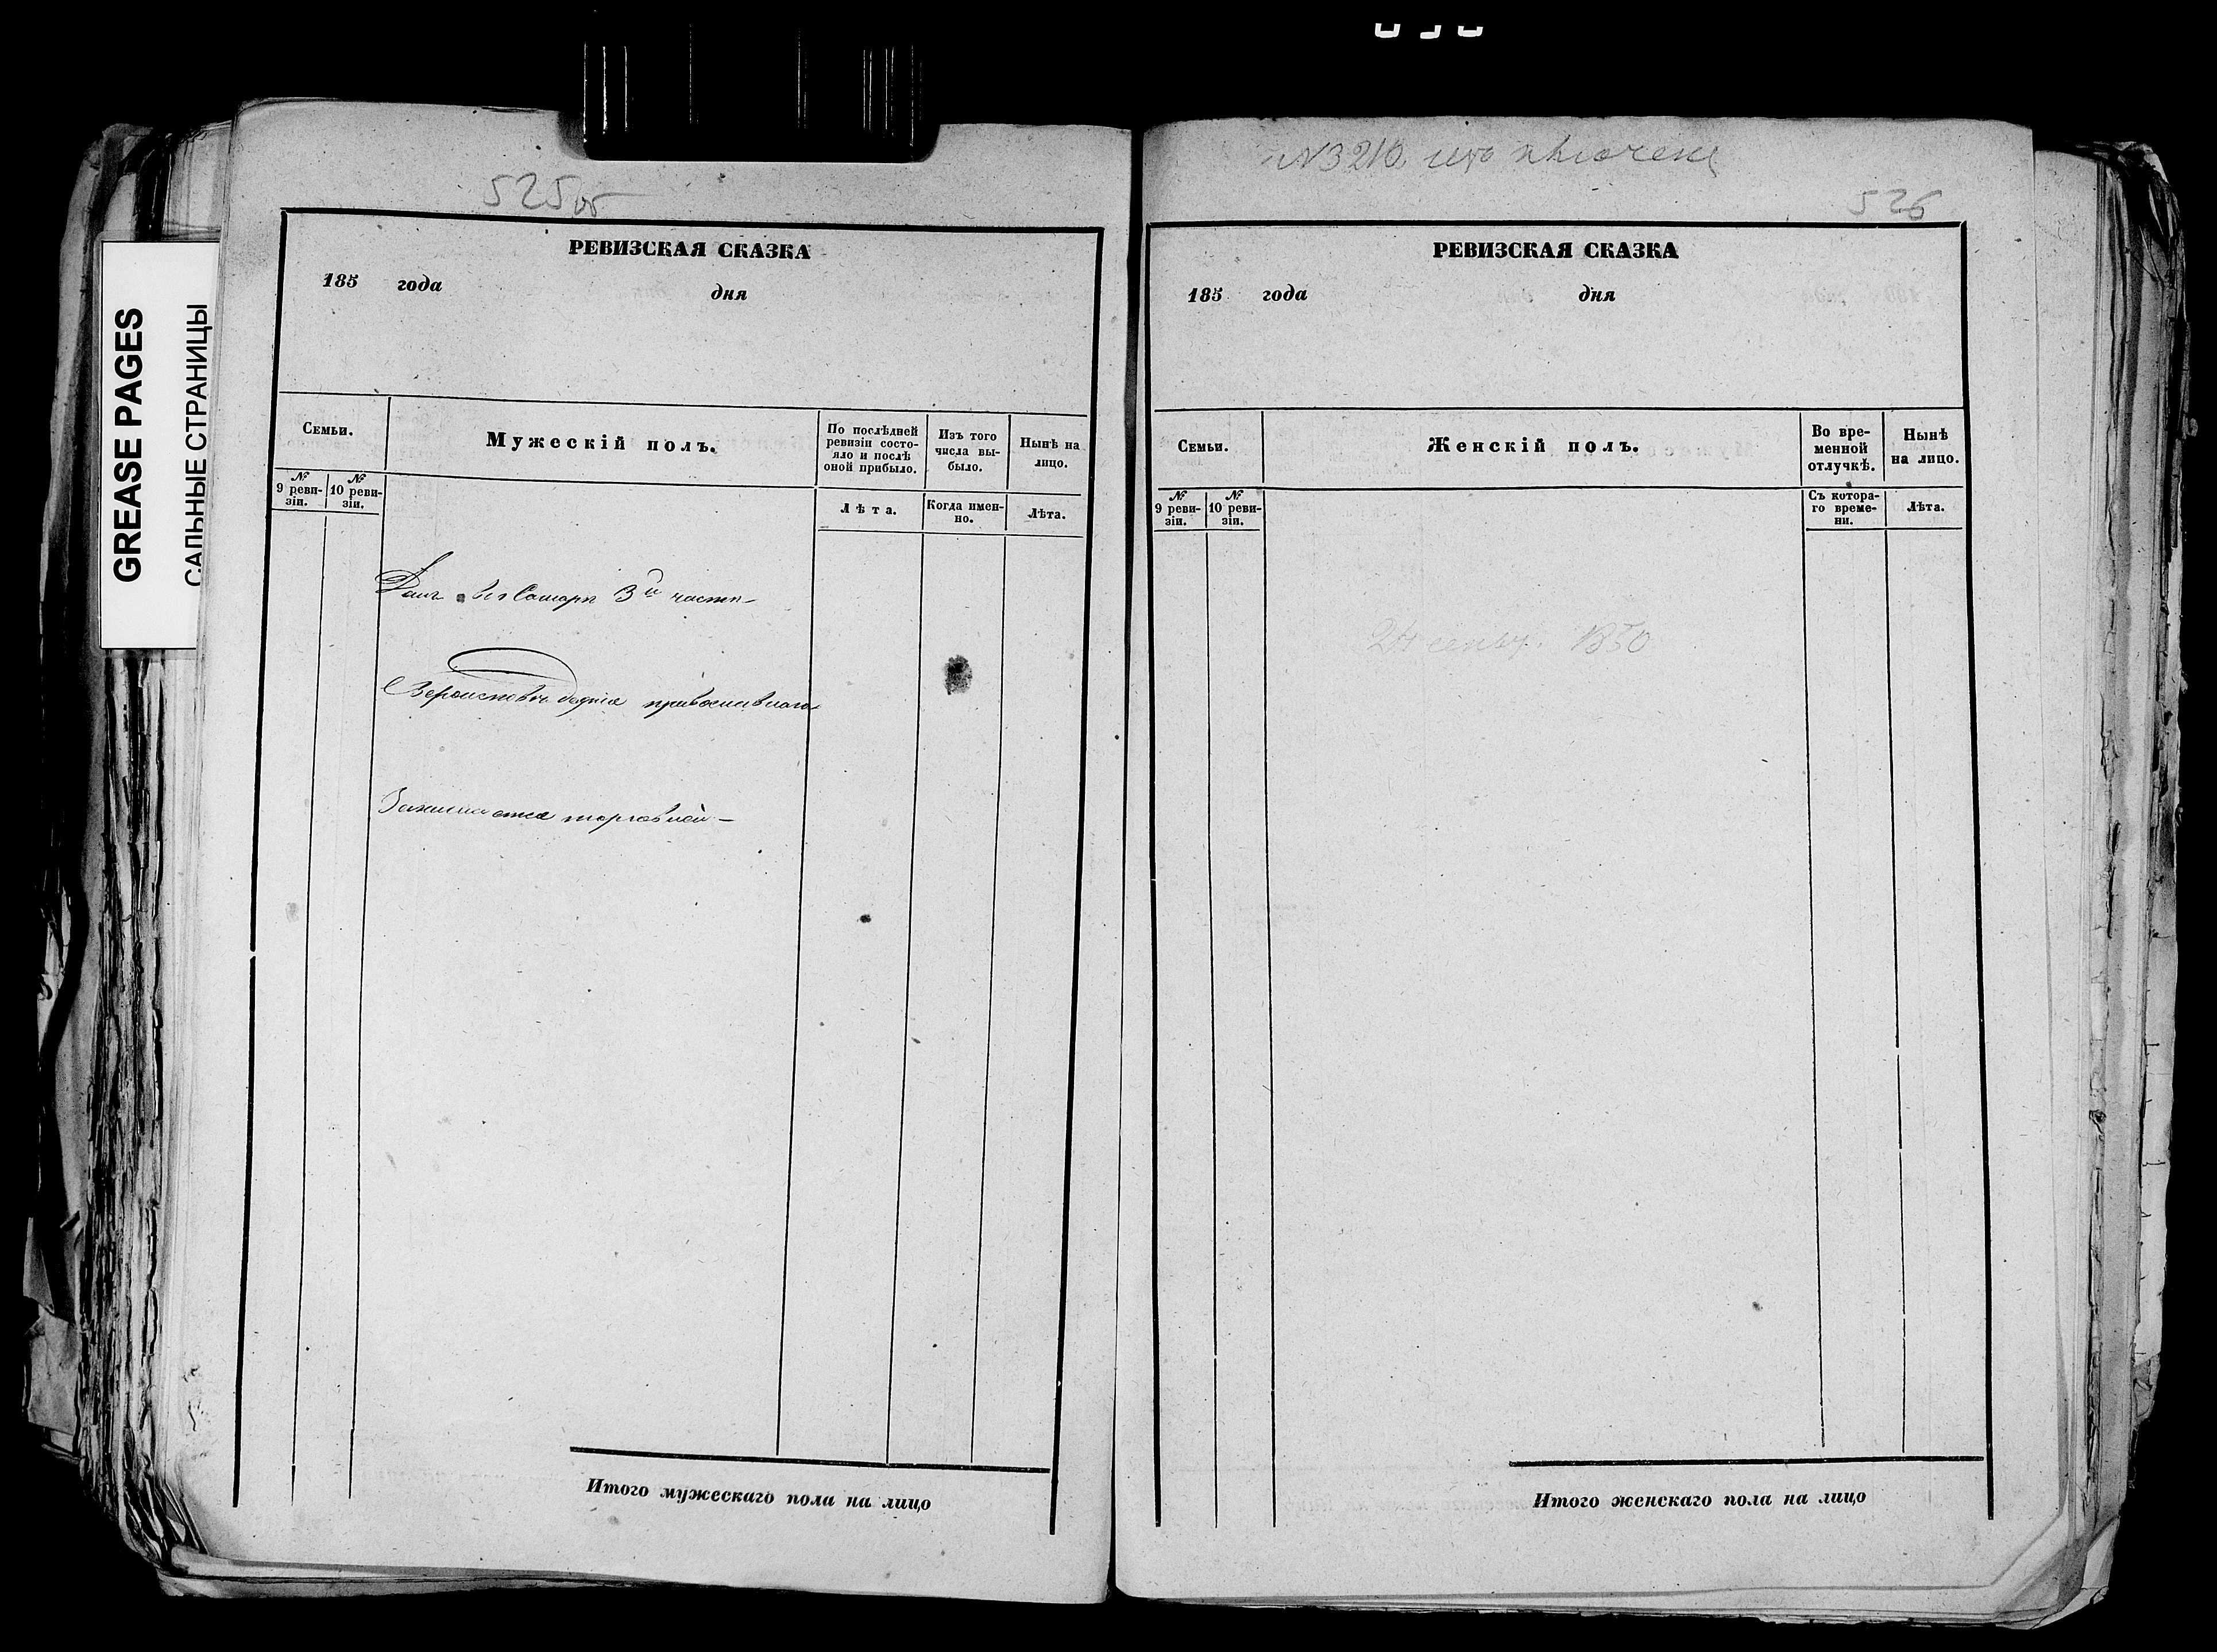 GREASE PAGES
САЛЬНЫЕ СТРАНИЦЫ
525об
РЕВИЗСКАЯ СКАЗКА
185 года дня
Семьи.
Мужескій полъ.
По послѣдней ревизіи состо-
яло и послѣ
оной прибыло.
Изъ того
числа вы-
было.
Нынѣ на
лицо.
№
9 реви-
зіи.
№
10 реви-
зіи.
Лѣта.
Когда имен-
но.
Лѣта.
Домъ въ г Самаре 3й части
Вероисповеданія православнаго
Занимается торговлей
Итого мужескаго пола на лицо
N 3210
526
РЕВИЗСКАЯ СКАЗКА
185 года дня
Семьи.
Женскій полъ.
Во вре-
менной
отлучкѣ.
Нынѣ
на лицо.
№
9 реви-
зіи.
№
10 реви-
зіи.
Съ котора-
го време-
ни.
Лѣта.
24 1850
Итого женскаго пола на лицо